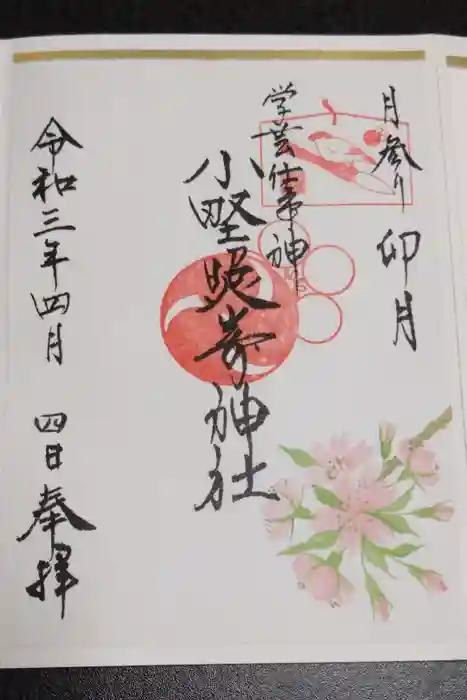 月参り 卯月
学芸仕事神
小野照崎神社
令和三年四月 四日 奉拝